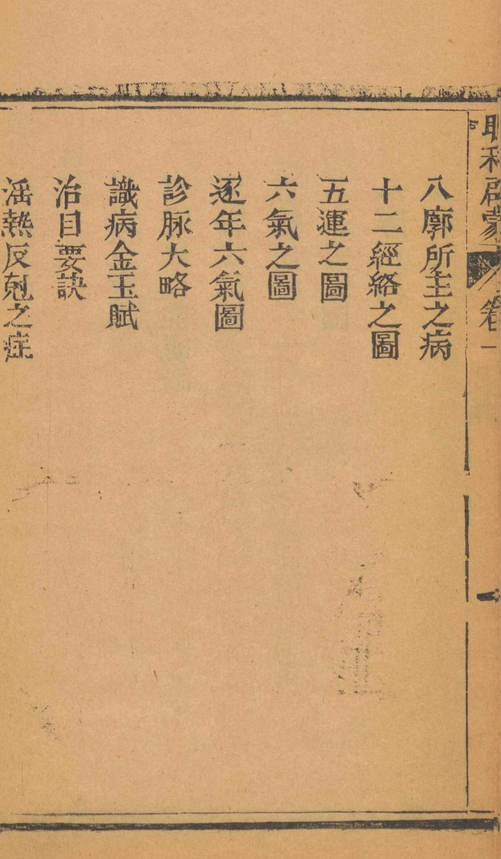 眼科啟蒙 卷一
八廓所主之病
十二經絡之圖
五運之圖
六氣之圖
逐年六氣圖
診脉大略
識病金玉賦
治目要訣
淫熱反剋之症